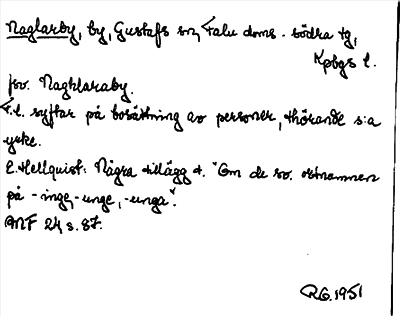 Naglarby, by, Gustafs sn, Falu doms. södra tg,
Kpbgs l.
fsv. Naghlaraby.
F.l. syftar på bosättning av personer, tillhörande s:a
yrke.
E. Hellquist: Några tillägg t. "Om de sv. ortnamnen
på -inge, -unge, -unga".
ANF 24 s. 87.
RG. 1951